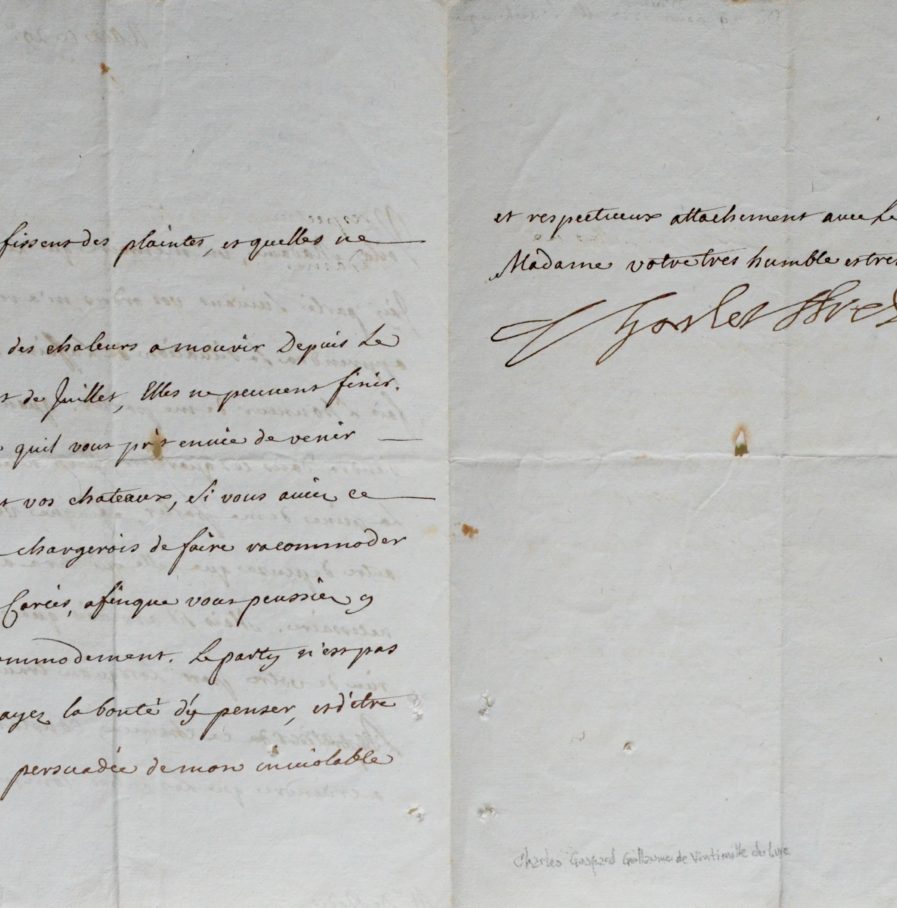 fissent des plaintes, et quelles ne
des chaleurs a mourir Depuis Le
de Juillet, Elles ne peuvent finir.
quil vous prît envie de venir
vos chateaux, Si vous aviez ce
chargerois de faire racommoder
Carcés, afinque vous peussiez y
ommodement. Le party n'est pas
ayez la bonté d'y penser, et d'être
persuadée de mon inviolable
et respectueux attachement avec Le
Madame votre tres humble et tres
Charles
Charles Gaspard Guillaume de Vintimille du Luc